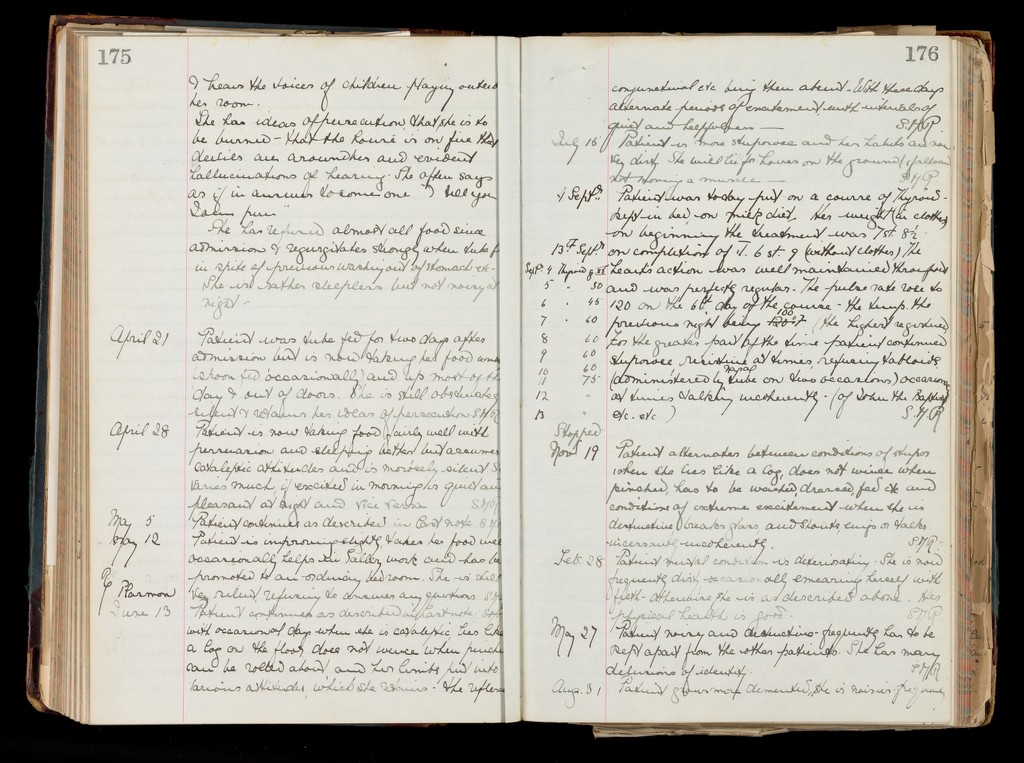 175
& hears the voices of children playing outside
her room.
She has ideas of persecution, that she is to
be burned – that the house is on fire that
devils are around her and evident
hallucinations of hearing. She often says
as if in answer to some one "I tell you
I am pure"
She has refused almost all food since
admission & regurgitates strongly when tube fed
in spite of previous washing out of stomach etc.
She is rather sleepless but not noisy at
night –
April 21 Patient was tube fed for two days after
admission but is now taking her food
(spoon fed occasionally) and up most of the
day & out of doors. She is still obstinately
silent & retains her ideas of persecution
April 28 Patient is now taking food fairly well with
persuasion and sleeping better but assumes
cataleptic attitudes and is morosely silent. She
varies much, if excited in morning is quiet and
pleasant at night and vice versa
May 5 Patient continues as described in last note
May 12 Patient is improving slightly, takes her food well
occasionally helps in work and has been
promoted to an ordinary bedroom. She is still
very silent refusing to answer any questions
June 13 Patient continues as described in last note.
with occasional days when she is cataleptic lies like
a log on the floor, does not wince when pinched
can be rolled about and her limbs put into
various attitudes, which she retains – the reflexes
176
conjunctival etc being then absent – With these days
alternate periods of excitement with intervals of
quiet and helpfulness –
July 16 Patient is more stuporose and her habits are now
very dirty. She will lie for hours on the ground if allowed
not moving a muscle –
4 Sept Patient was today put on a course of Thyroid –
kept in bed – on milk diet. Her weight (in clothes)
on beginning the treatment was 7 st. 8½
13th Sept on completion of T. 6 st. 9 (without clothes) The
Sept. 4 Thyroid heart's action was well maintained throughout
5 " 30 and was perfectly regular. The pulse rate rose to
6 " 45 120 on the 6th day of the course – the temp. the
7 " 60 previous night being 100 (the highest registered)
8 60 For the greater part of the time patient continued
9 60 stuporose, resistive at times, refusing tabloids
10 60 (administered by nasal tube on two occasions) occasionally
11 75
12 " at times talking incoherently – (of John the Baptist
13 " etc. etc)
Stopped
Nov 19 Patient alternates between conditions of stupor
when she lies like a log, does not wince when
pinched, has to be washed, dressed, fed etc and
conditions of extreme excitement when she is
destructive breaks glass and shouts, sings or talks
incessantly – incoherently.
Feb 28 Patient's mental condition is deteriorating. She is now
frequently dirty – occasionally smearing herself with
filth – otherwise she is as described above. Her
physical health is good.
May 27 Patient noisy and destructive – frequently has to be
kept apart from the other patients. She has many
delusions of identity.
Aug. 31 Patient grows more demented, she is noisier frequently